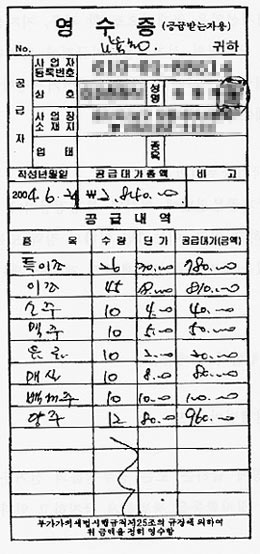 영 수 증 (공급받는자용)
No. 귀하
공급자
사업자
등록번호
상 호
성명
사업장
소재지
업 태
종목
작성년월일 공급대가총액 비 고
2004.6. ₩2,840.00
공 급 내 역
품 목 수 량 단 가 공급대가(금액)
특이조 26 30.00 780.00
이조 45 18.00 810.00
소주 10 4.00 40.00
맥주 10 5.00 50.00
음료 10 2.00 20.00
매실 10 8.00 80.00
백세주 10 10.00 100.00
양주 12 80.00 960.00
부가가치세법시행규칙제25조의 규정에 의하여
위 금액을 정히 영수함